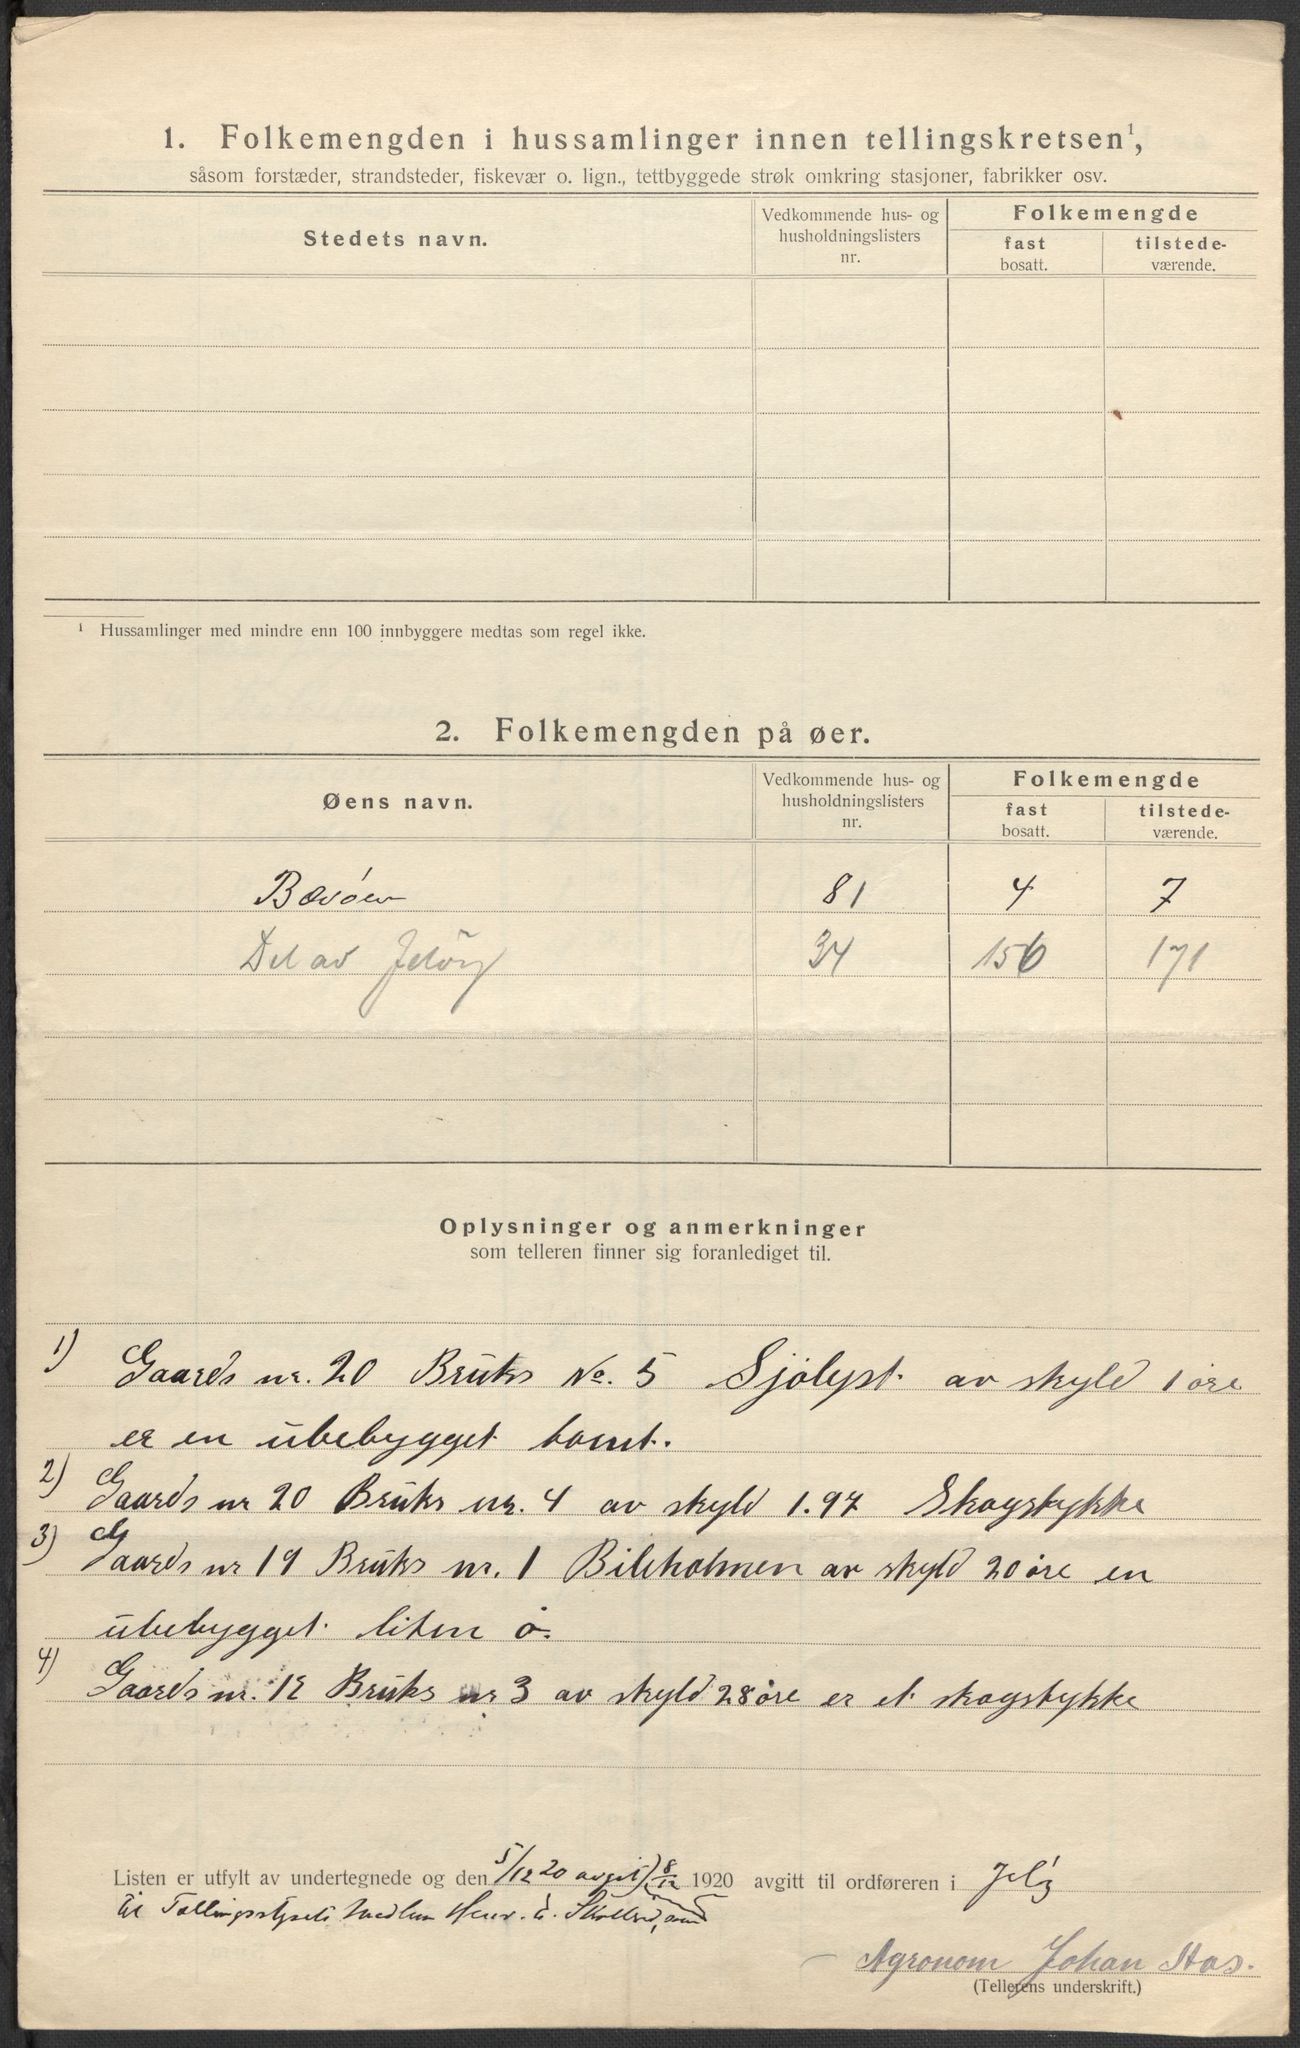 1. Folkemengden i hussamlinger innen tellingskretsen¹,
såsom forstæder, strandsteder, fiskevær o. lign., tettbyggede strøk omkring stasjoner, fabrikker osv.
Stedets navn.
Vedkommende hus- og husholdningslisters nr.
Folkemengde
fast bosatt.
tilstede-værende.
¹ Hussamlinger med mindre enn 100 innbyggere medtas som regel ikke.
2. Folkemengden på øer.
Øens navn.
Vedkommende hus- og husholdningslisters nr.
Folkemengde
fast bosatt.
tilstede-værende.
Bævøen 81 4 7
Del av Jeløy 34 156 171
Oplysninger og anmerkninger
som telleren finner sig foranlediget til.
1) Gaards nr. 20 Bruks No. 5 Sjølyst av skyld 1 øre
er en ubebygget tomt.
2) Gaards nr 20 Bruks nr. 4 av skyld 1.97 Skogstykke
3) Gaards nr 19 Bruks nr. 1 Bileholmen av skyld 20 øre en
ubebygget liten ø.
4) Gaards nr. 12 Bruks nr 3 av skyld 28 øre er et skogstykke
Listen er utfylt av undertegnede og den 5/12 20 avgit 8/12 1920 avgitt til ordføreren i Jeløy
til Tællingsstyrets medlem Henr.
Agronom Johan Aas.
(Tellerens underskrift.)